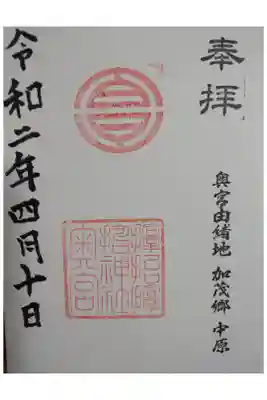 奉拝
奥宮由緒地 加茂郷 中原
神社
奥宮
令和二年四月十日